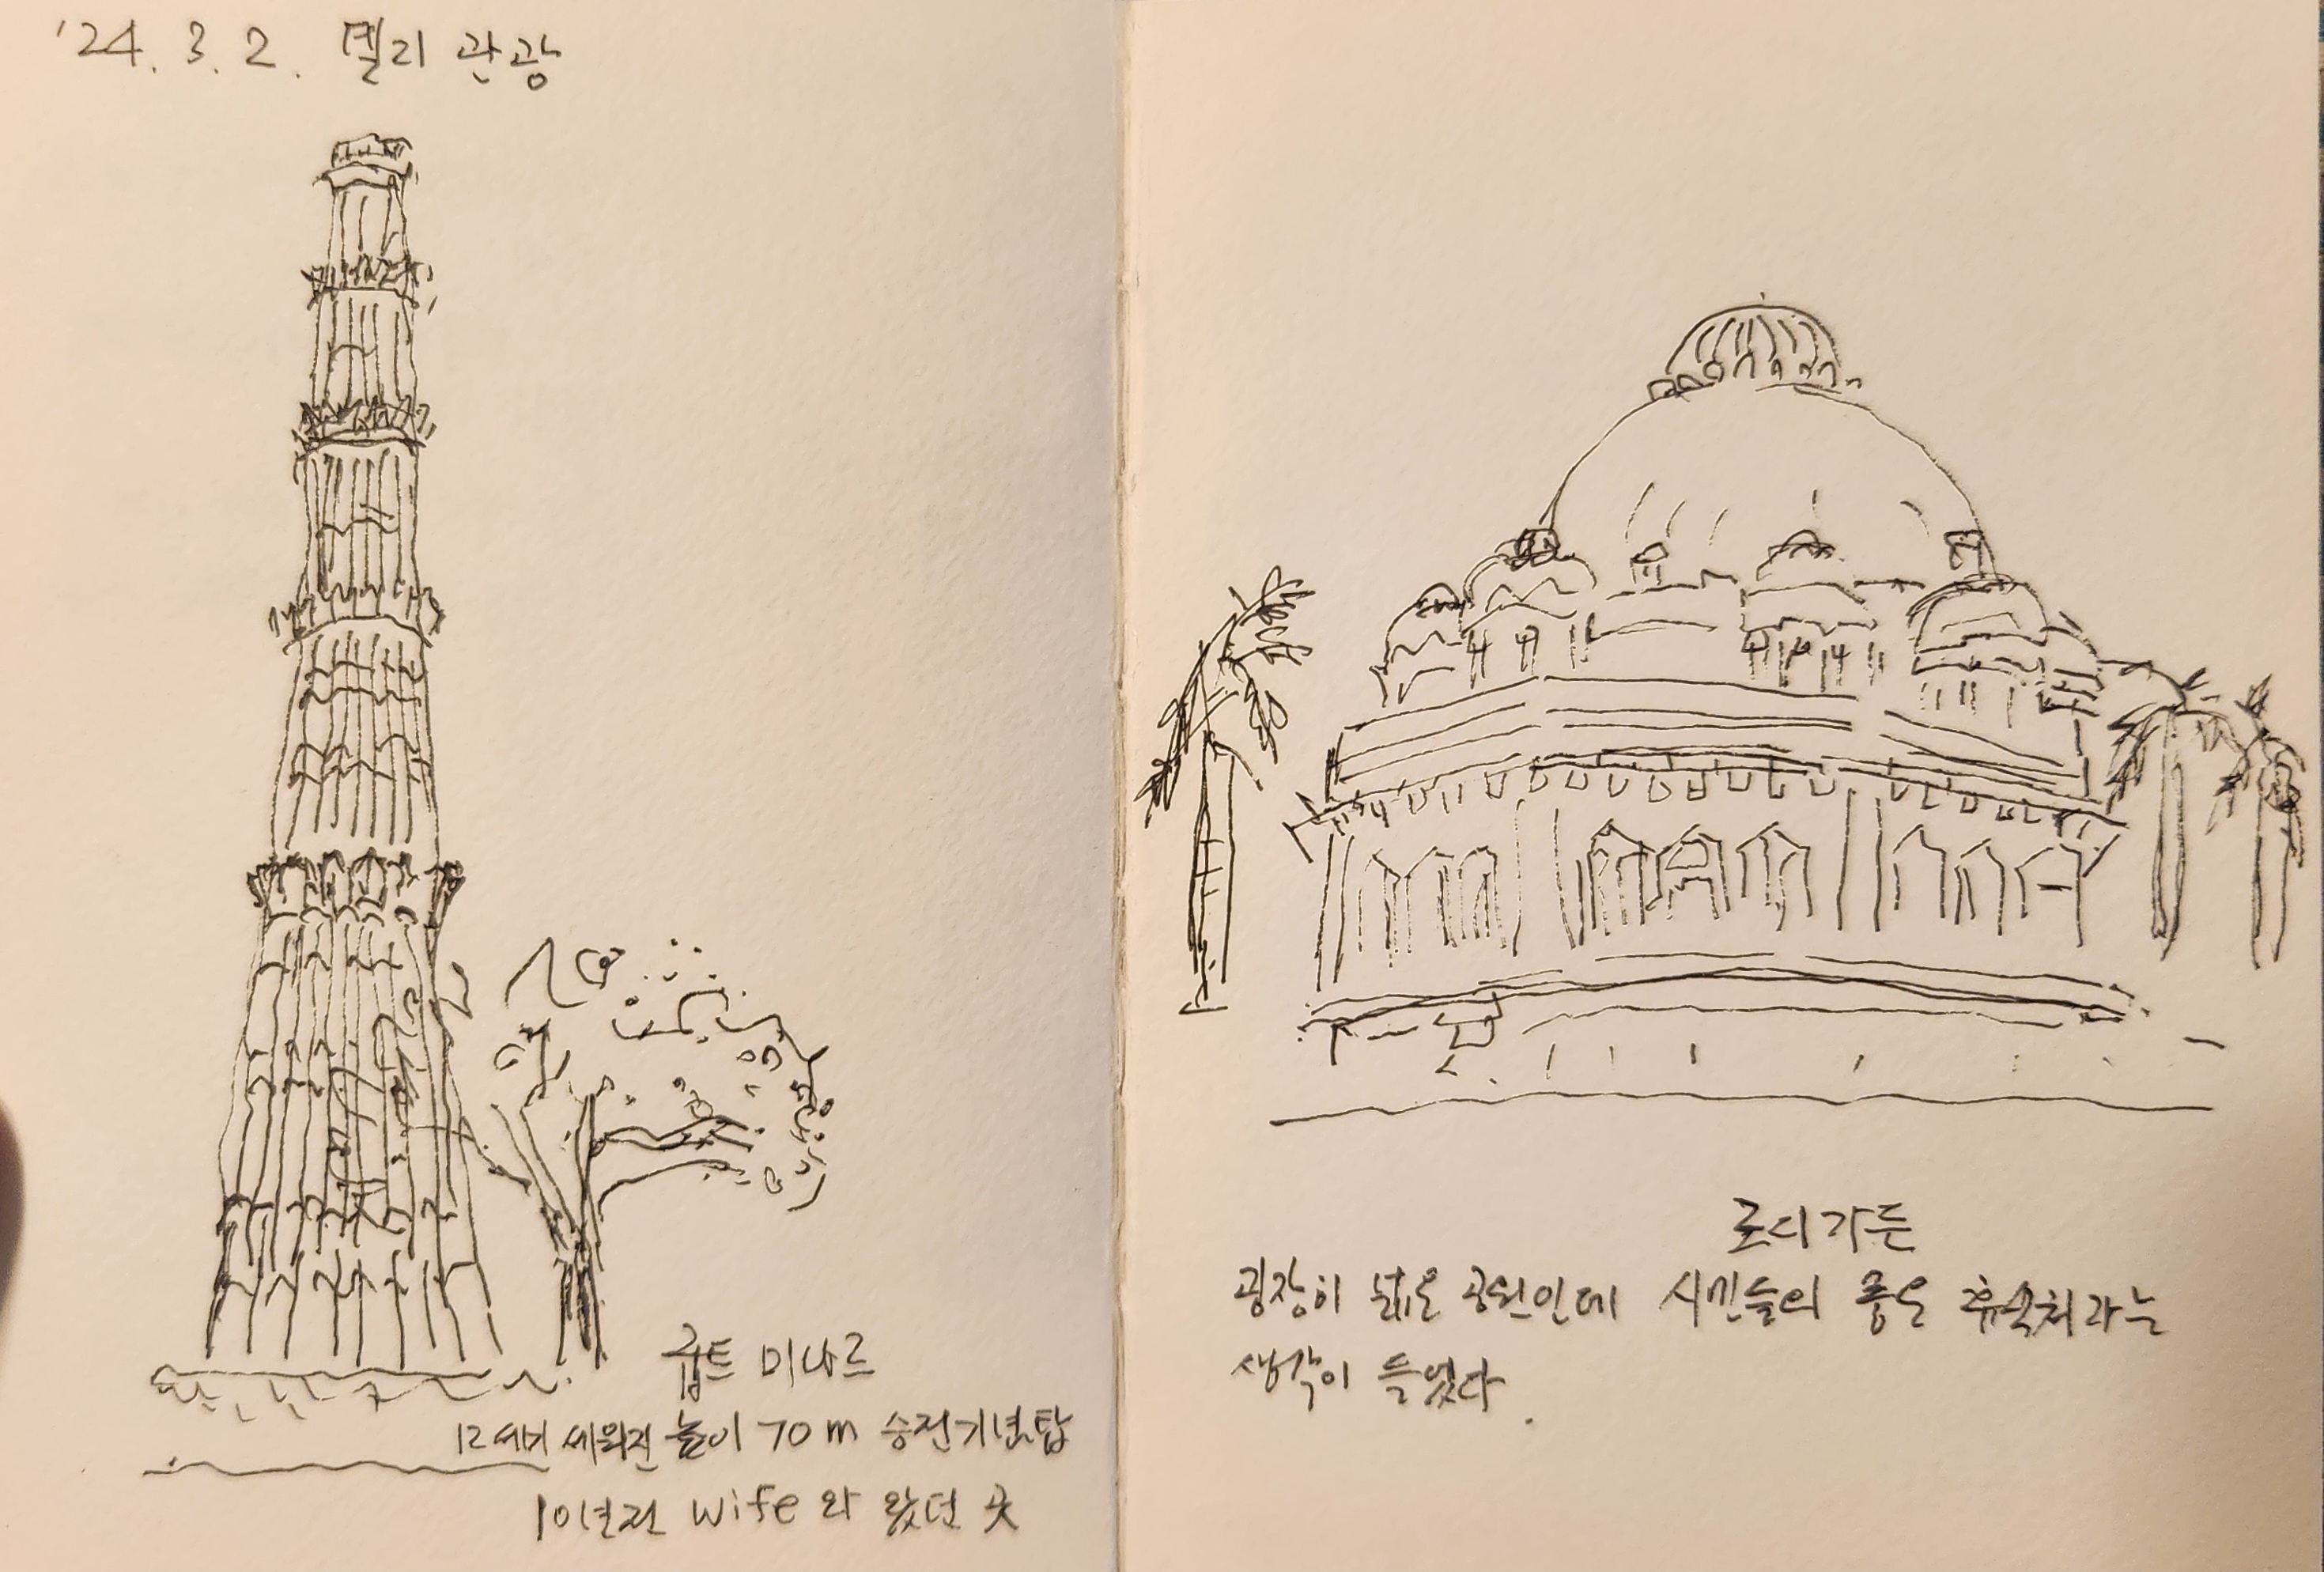 '24. 3. 2. 델리 관광
쿱트 미나르
12세기 세워진 높이 70m 승전기념탑
10년전 wife와 왔던 곳
로디가든
굉장히 넓은 공원인데 시민들의 좋은 휴식처라는
생각이 들었다.